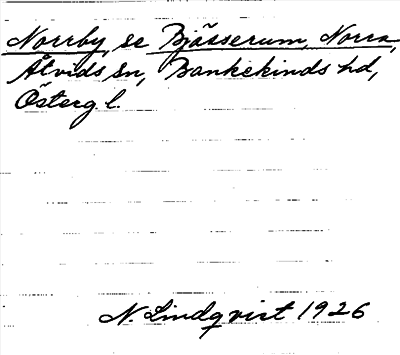 Norrby, se Bjässerum, Norra,
Åtvids sn, Bankekinds hd,
Österg. l.
N. Lindqvist 1926